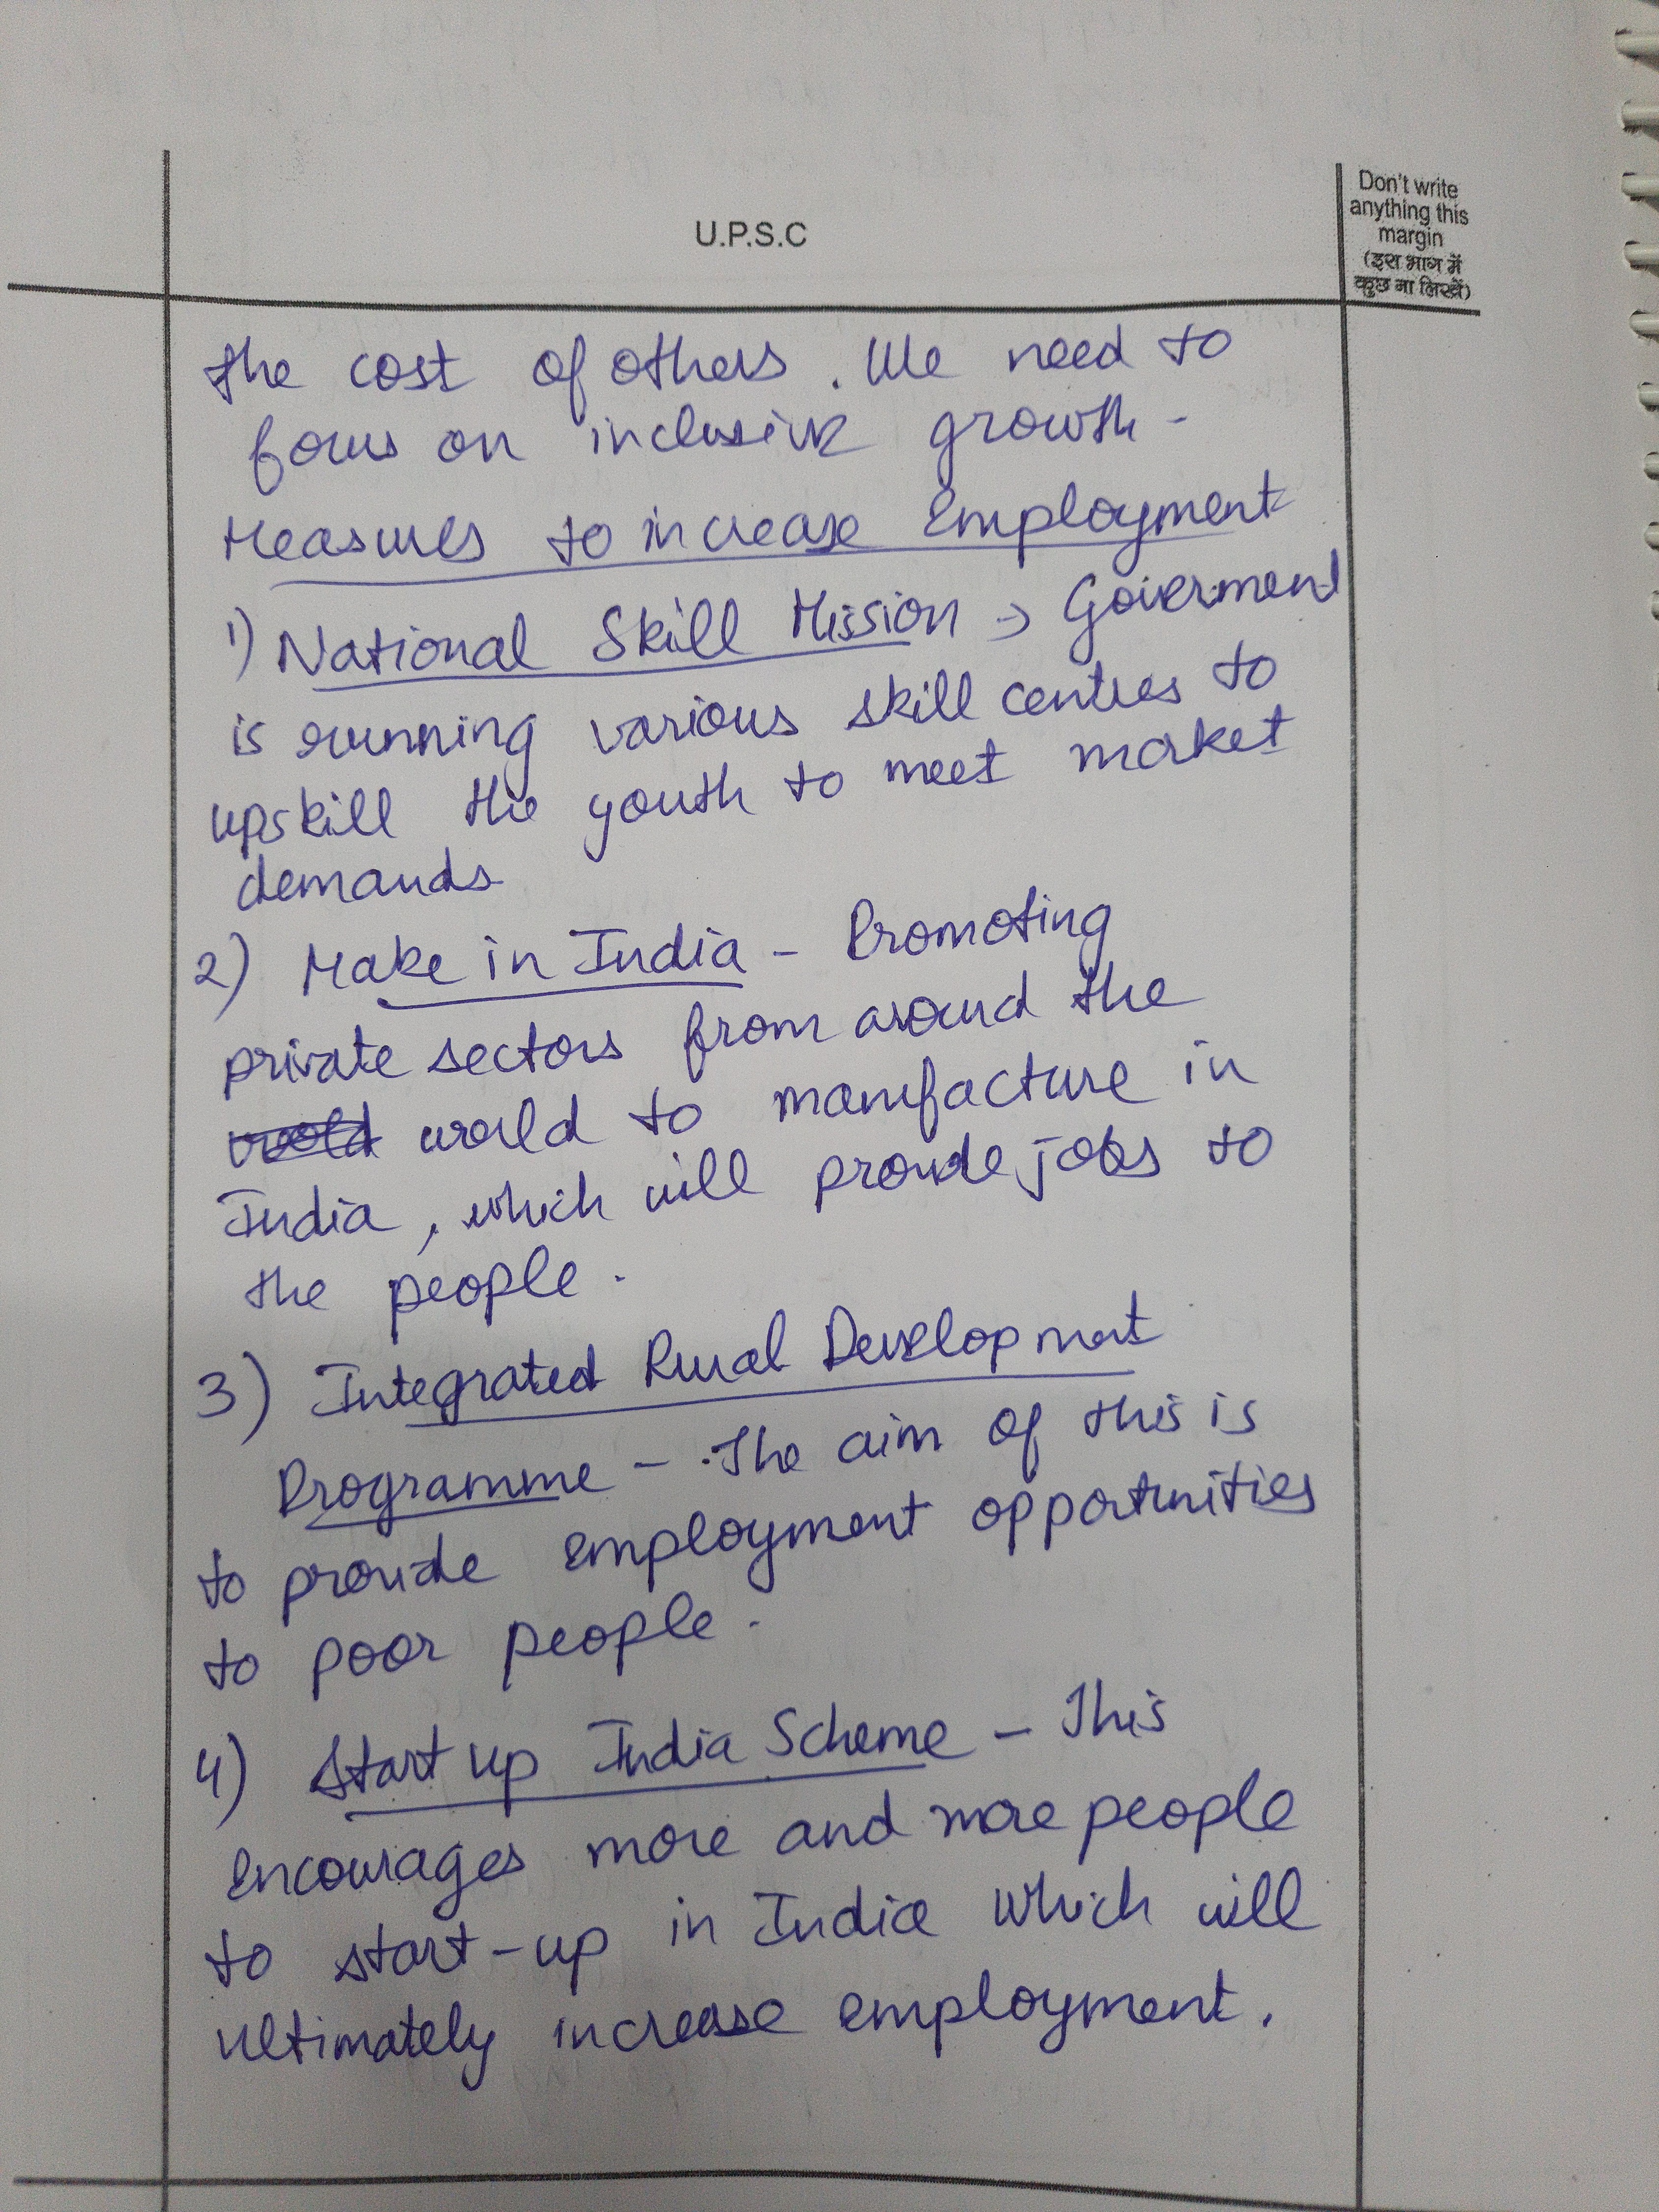 U.P.S.C
Don't write
anything this
margin
(इस भाग में
कुछ ना लिखें)
the cost of others. We need to
focus on inclusive growth-
Measures to increase Employment
1) National Skill Mission → Goverment
is running various skill centres to
upskill the youth to meet market
demands
2) Make in India - Promoting
private sectors from around the
world to manufacture in
India, which will provide jobs to
the people.
3) Integrated Rural Development
Programme - The aim of this is
to provide employment opportunities
to poor people.
4) Start up India Scheme - This
encourages more and more people
to start-up in India which will
ultimately increase employment.